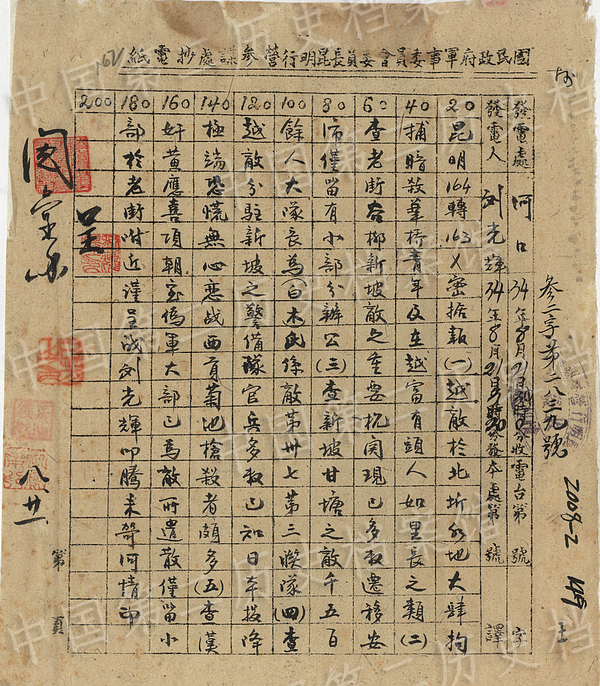 國民政府軍事委員會委員長昆明行營參謀處抄電紙
參二字第二三九號
發電處 河口 34年8月21日 時 分收電台第 號 字
發電人 刘光輝 34年8月21日 時 分發本處第 號 譯
20 昆明164轉163X密據報(一)越敵於北圻各地大肆拘
40 捕暗殺華僑青年及在越富有頭人如里長之類(二)
60 查老街谷柳新坡敵之重要机関現已多数遷移安
80 沛僅留有小部分辦公(三)查新坡甘塘之敵千五百
100 餘人大隊長為白木民係敵第卅七第三聯隊(四)查
120 越敵分駐新坡之警備隊官兵多数已知日本投降
140 極端恐慌無心恋战西貢菊地槍殺者頗多(五)查漢
160 奸黄應喜項朝宝偽軍大部已為敵所遣散僅留小
180 部於老街附近謹呈战刘光輝叩騰未哿河情印
200
呈
八廿一
第 頁
2008-2
149